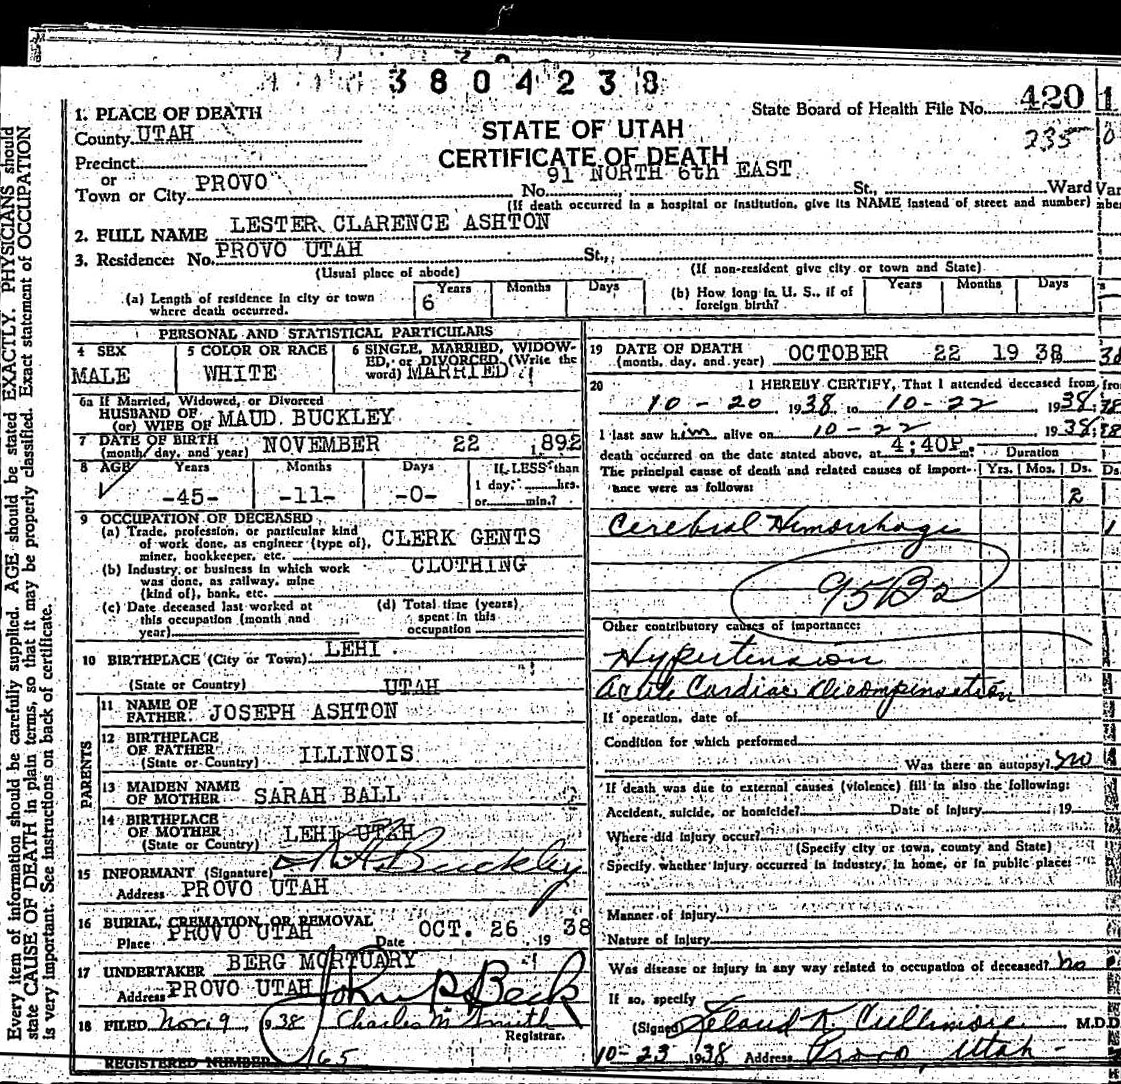 3804238
State Board of Health File No. 420
235
1. PLACE OF DEATH
County UTAH
STATE OF UTAH
CERTIFICATE OF DEATH
Precinct
or
Town or City PROVO No. 91 NORTH 6th EAST St., Ward
(If death occurred in a hospital or institution, give its NAME instead of street and number)
2. FULL NAME LESTER CLARENCE ASHTON
3. Residence: No. PROVO UTAH St.,
(Usual place of abode) (If non-resident give city or town and State)
(a) Length of residence in city or town where death occurred. Years 6 Months Days
(b) How long in U. S., if of foreign birth? Years Months Days
PERSONAL AND STATISTICAL PARTICULARS
4 SEX MALE
5 COLOR OR RACE WHITE
6 SINGLE, MARRIED, WIDOWED, or DIVORCED (Write the word) MARRIED
6a If Married, Widowed, or Divorced
HUSBAND OF
(or) WIFE OF MAUD BUCKLEY
7 DATE OF BIRTH
(month, day, and year) NOVEMBER 22 1892
8 AGE Years Months Days If LESS than
-45- -11- -0- 1 day, hrs.
or min.?
9 OCCUPATION OF DECEASED
(a) Trade, profession, or particular kind
of work done, as engineer (type of), CLERK GENTS
miner, bookkeeper, etc.
(b) Industry, or business in which work CLOTHING
was done, as railway, mine
(kind of), bank, etc.
(c) Date deceased last worked at
this occupation (month and
year)
(d) Total time (years)
spent in this
occupation
10 BIRTHPLACE (City or Town) LEHI
(State or Country) UTAH
PARENTS
11 NAME OF
FATHER: JOSEPH ASHTON
12 BIRTHPLACE
OF FATHER ILLINOIS
(State or Country)
13 MAIDEN NAME
OF MOTHER SARAH BALL
14 BIRTHPLACE
OF MOTHER LEHI UTAH
(State or Country)
15 INFORMANT (Signature) Buckley
Address PROVO UTAH
16 BURIAL, CREMATION, OR REMOVAL
Place PROVO UTAH Date OCT. 26 19 38
17 UNDERTAKER BERG MORTUARY
Address PROVO UTAH John P Beck
18 FILED Nov. 9 1938 Charles M Smith
Registrar.
REGISTERED NUMBER 165
19 DATE OF DEATH
(month, day, and year) OCTOBER 22 19 38
20 I HEREBY CERTIFY, That I attended deceased from
10-20 1938 to 10-22 1938
I last saw him alive on 10-22 1938;
death occurred on the date stated above, at 4;40P m.
Duration
The principal cause of death and related causes of importance were as follows: Yrs. Mos. Ds.
2
Cerebral Hemorrhage
95B2
Other contributory causes of importance:
Hypertension
Acute Cardiac Decompensation
If operation, date of
Condition for which performed
Was there an autopsy? no
If death was due to external causes (violence) fill in also the following:
Accident, suicide, or homicide? Date of Injury 19
Where did injury occur?
(Specify city or town, county and State)
Specify whether injury occurred in industry, in home, or in public place:
Manner of Injury
Nature of Injury
Was disease or injury in any way related to occupation of deceased? no
If so, specify
(Signed) Leland K Cullimore M.D.
10-23 1938 Address Provo Utah
Every item of information should be carefully supplied. AGE should be stated EXACTLY. PHYSICIANS should
state CAUSE OF DEATH in plain terms, so that it may be properly classified. Exact statement of OCCUPATION
is very important. See instructions on back of certificate.